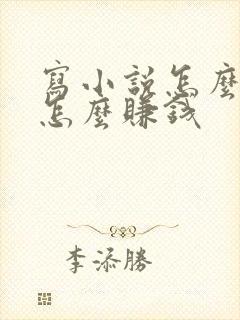 寫小說怎麼
怎麼賺錢
李添勝